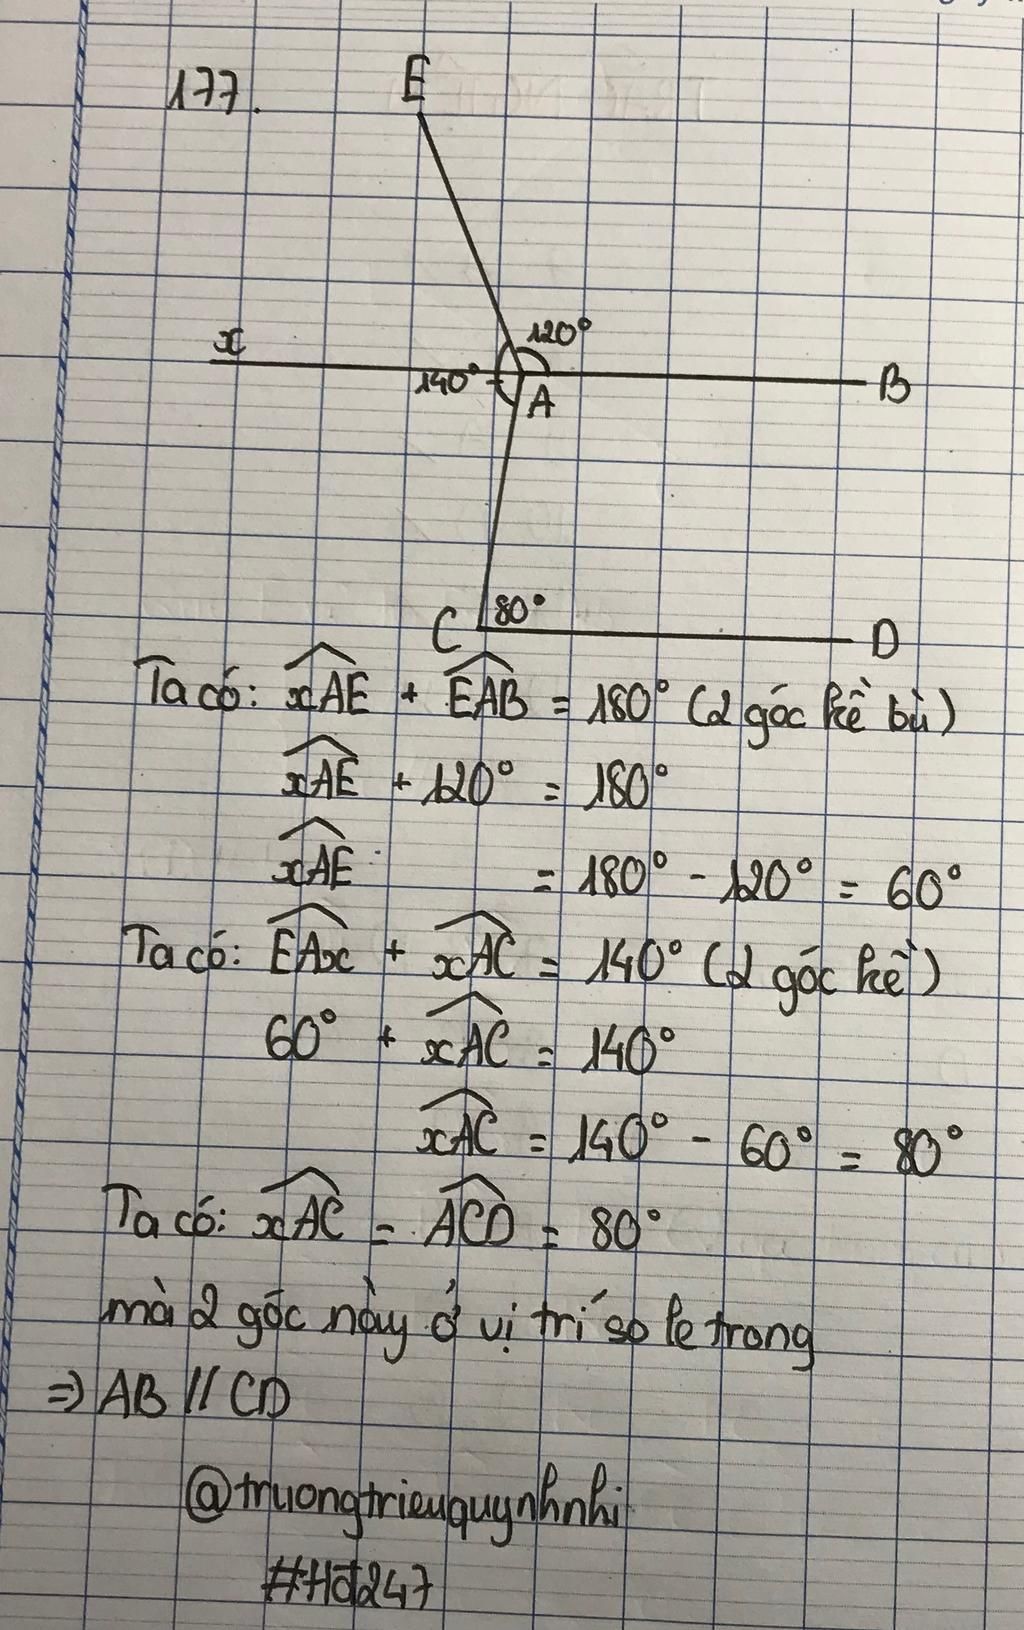 177.
E
x
120°
140°
A
B
C
80°
D
Ta có: xAE + EAB = 180° (2 góc kề bù)
xAE + 120° = 180°
xAE = 180° - 120° = 60°
Ta có: EAx + xAC = 140° (2 góc kề)
60° + xAC = 140°
xAC = 140° - 60° = 80°
Ta có: xAC = ACD = 80°
mà 2 góc này ở vị trí so le trong
=> AB // CD
@truongtrieuquynhnhi
#Hđ247